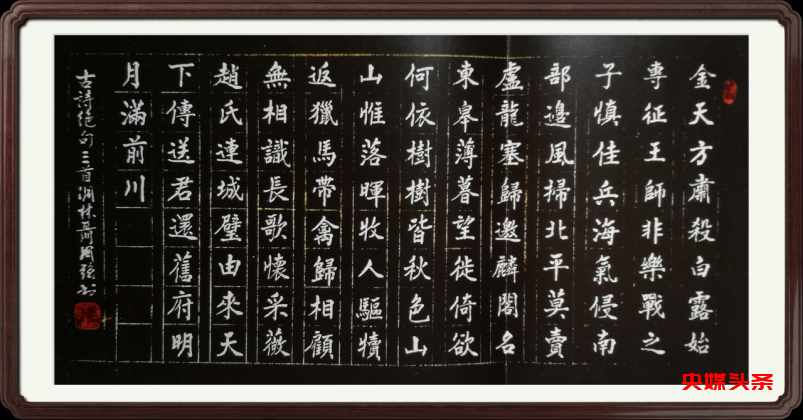 金天方肅殺白露始
專征王師非樂戰之
子慎佳兵海氣侵南
部邊風掃北平莫賣
盧龍塞歸邀麟閣名
東皋薄暮望徙倚欲
何依樹樹皆秋色山
山惟落暉牧人驅犢
返獵馬帶禽歸相顧
無相識長歌懷采薇
趙氏連城璧由來天
下傳送君還舊府明
月滿前川
古詩绝句三首
央媒头条